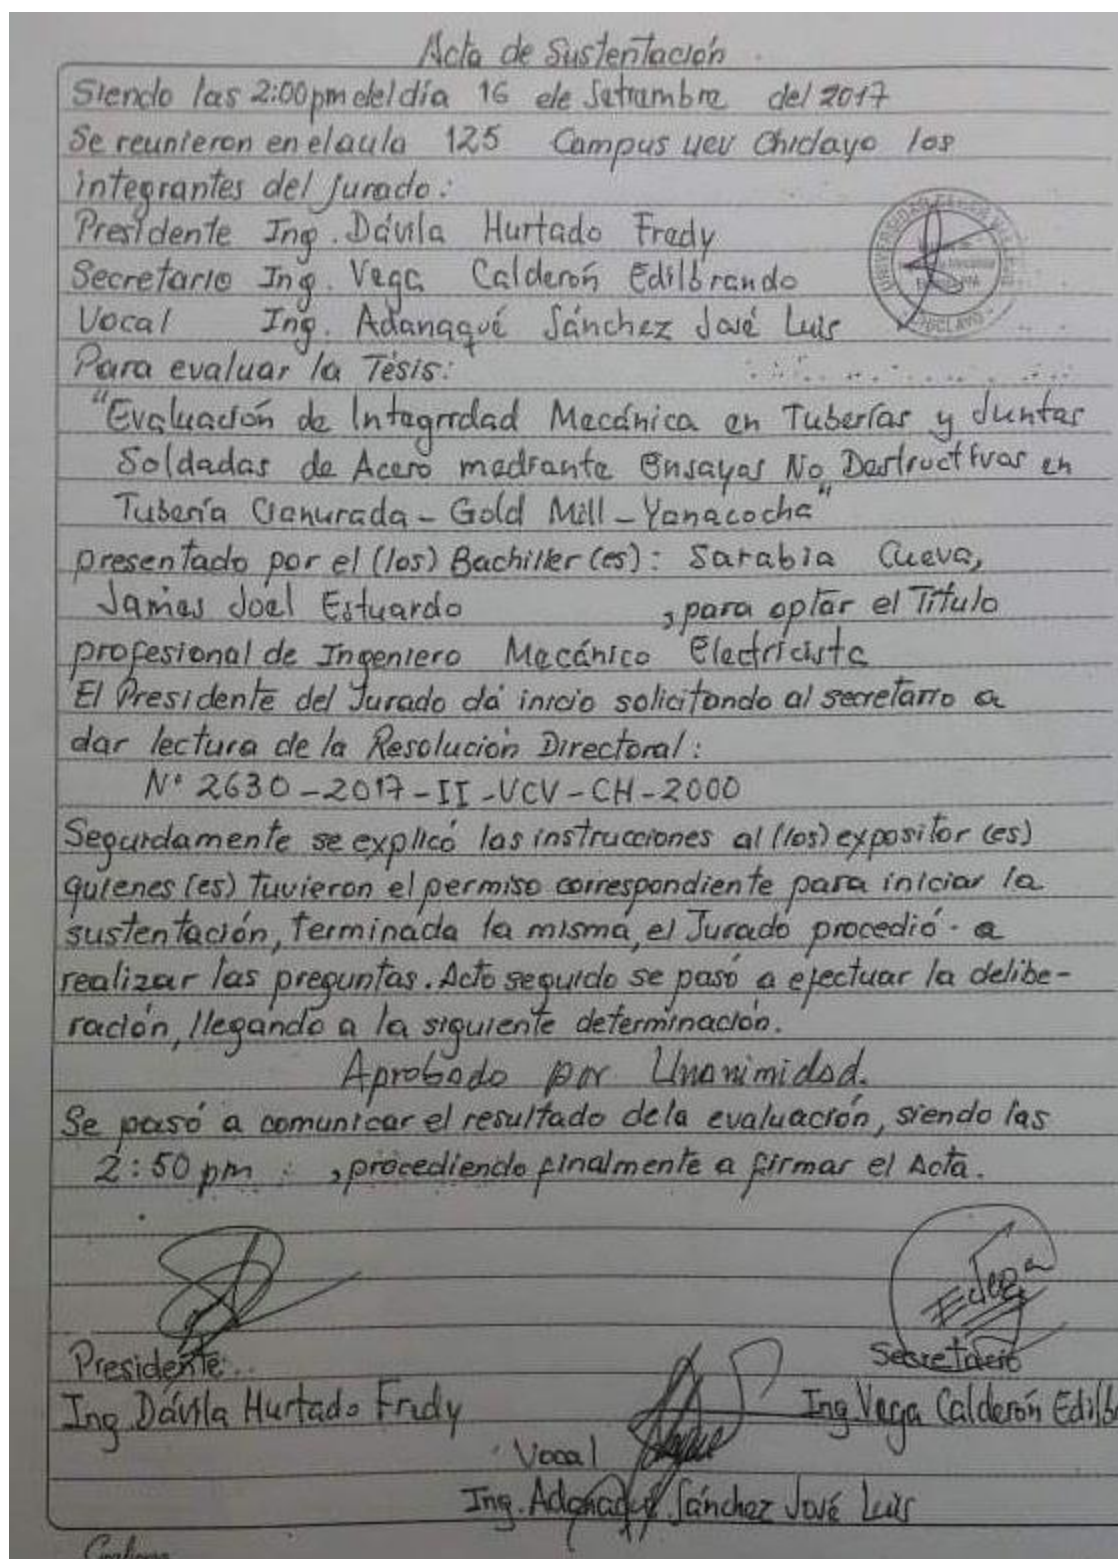 Acta de Sustentación
Siendo las 2:00 pm del día 16 de Setiembre del 2017
Se reunieron en el aula 125 Campus UCV Chiclayo los
integrantes del jurado:
Presidente Ing. Dávila Hurtado Fredy
Secretario Ing. Vega Calderón Edilbrando
Vocal Ing. Adanaqué Sánchez José Luis
Para evaluar la Tésis:
"Evaluación de Integridad Mecánica en Tuberías y Juntas
Soldadas de Acero mediante Ensayos No Destructivos en
Tubería Cianurada - Gold Mill - Yanacocha"
presentado por el (los) Bachiller (es): Sarabia Cueva,
James Joel Estuardo , para optar el Título
profesional de Ingeniero Mecánico Electricista
El Presidente del Jurado dá inicio solicitando al secretario a
dar lectura de la Resolución Directoral:
N° 2630-2017-II-UCV-CH-2000
Seguidamente se explicó las instrucciones al (los) expositor (es)
quienes (es) tuvieron el permiso correspondiente para iniciar la
sustentación, terminada la misma, el Jurado procedió a
realizar las preguntas. Acto seguido se pasó a efectuar la delibe-
ración, llegando a la siguiente determinación.
Aprobado por Unanimidad.
Se pasó a comunicar el resultado de la evaluación, siendo las
2:50 pm , procediendo finalmente a firmar el Acta.
Presidente:
Secretario
Ing. Dávila Hurtado Fredy
Ing. Vega Calderón Edilb
Vocal
Ing. Adanaqué Sánchez José Luis